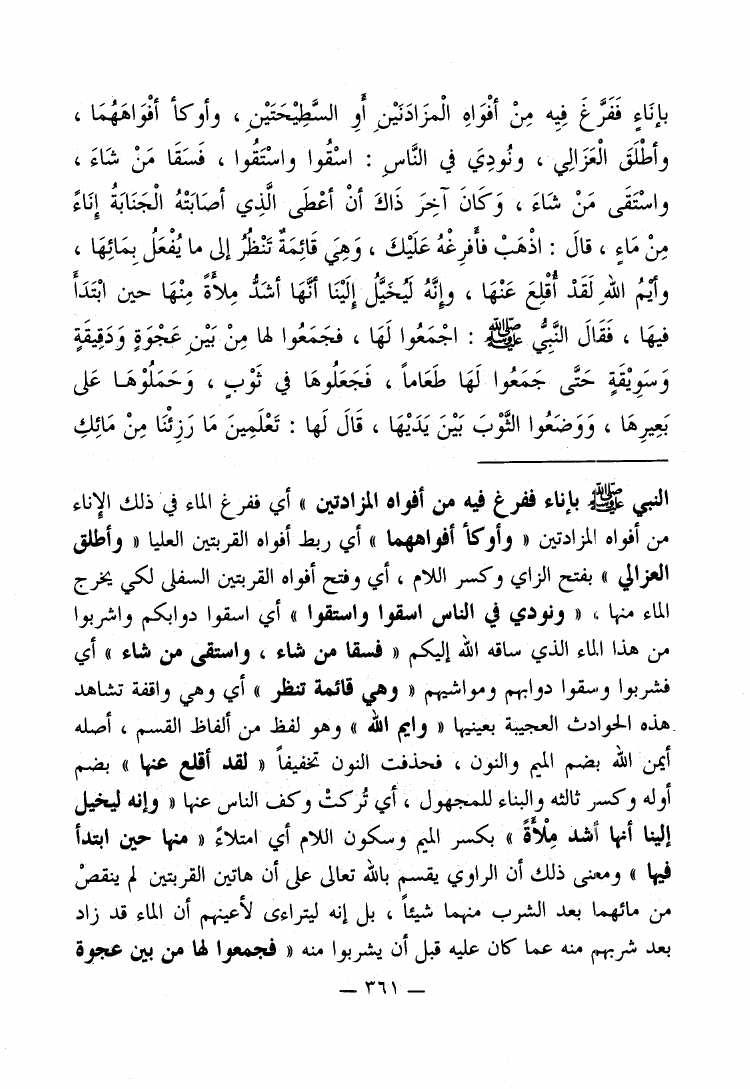 بِإنَاءٍ فَفَرَّغَ فِيهِ مِنْ أفْوَاهِ الْمزَادَتَيْنِ أَوِ السَّطِيْحَتَيْنِ ، وأوكأ أفْوَاهَهُمَا ،
وأطْلَقَ الْعَزَالِي ، ونُودِيَ في النَّاسِ : اسْقُوا واسْتَقُوا ، فَسَقَا مَنْ شَاءَ ،
واسْتَقَى مَنْ شَاءَ ، وَكَانَ آخِرَ ذَاكَ أنْ أعْطَى الَّذِي أصَابَتْهُ الْجَنَابَةُ إنَاءً
مِنْ مَاءٍ ، قالَ : اذْهَبْ فأفرِغْهُ عَلَيْكَ ، وَهِيَ قَائِمَةٌ تَنْظُرُ إلى ما يُفْعَلُ بِمَائِهَا ،
وأيْمُ اللهِ لَقَدْ أُقْلِعَ عَنْهَا ، وإنَّهُ لَيُخَيَّلُ إلَيْنَا أنَّهَا أشَدُّ مِلأَةً مِنْهَا حين ابْتَدَأَ
فيهَا ، فَقَالَ النَّبِيُّ ﷺ : اجْمَعُوا لَهَا ، فجَمَعُوا لها مِنْ بَيْنِ عَجْوَةٍ وَدَقِيقَةٍ
وَسَوِيْقَةٍ حَتَّى جَمَعُوا لَهَا طَعَاماً ، فَجَعَلُوهَا في ثَوْبٍ ، وَحَمَلُوْهَا عَلى
بَعِيرِهَا ، وَوَضَعُوا الثَّوْبَ بَيْنَ يَدَيْهَا ، قَالَ لَها : تَعْلَمِينَ مَا رَزِئْنَا مِنْ مَائِكِ
النبي ﷺ بإناء ففرغ فيه من أفواه المزادتين » أي ففرغ الماء في ذلك الإناء
من أفواه المزادتين « وأوكأ أفواههما » أي ربط أفواه القربتين العليا « وأطلق
العزالي » بفتح الزاي وكسر اللام ، أي وفتح أفواه القربتين السفلى لكي يخرج
الماء منها ، « ونودي في الناس اسقوا واستقوا » أي اسقوا دوابكم واشربوا
من هذا الماء الذي ساقه الله إليكم « فسقا من شاء ، واستقى من شاء » أي
فشربوا وسقوا دوابهم ومواشيهم « وهي قائمة تنظر » أي وهي واقفة تشاهد
هذه الحوادث العجيبة بعينيها « وايم الله » وهو لفظ من ألفاظ القسم ، أصله
أيمن الله بضم الميم والنون ، فحذفت النون تخفيفاً « لقد أقلع عنها » بضم
أوله وكسر ثالثه والبناء للمجهول ، أي تُركتْ وكف الناس عنها « وإنه ليخيل
إلينا أنها أشد مِلْأَةً » بكسر الميم وسكون اللام أي امتلاءً « منها حين ابتدأ
فيها » ومعنى ذلك أن الراوي يقسم بالله تعالى على أن هاتين القربتين لم ينقصْ
من مائهما بعد الشرب منهما شيئاً ، بل إنه ليتراءى لأعينهم أن الماء قد زاد
بعد شربهم منه عما كان عليه قبل أن يشربوا منه « فجمعوا لها من بين عجوة
— ٣٦١ —